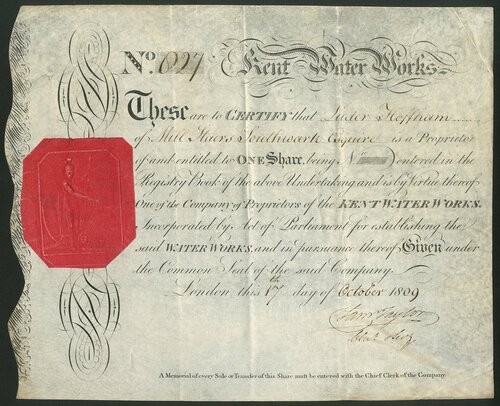 No. 027 Kent Water Works.
These are to CERTIFY that Luder Hoffham
of Mill Stairs Southwark Esquire is a Proprietor
of and entitled to ONE Share, being N entered in the
Registry Book of the above Undertaking and is by Virtue thereof
One of the Company of Proprietors of the KENT WATER WORKS.
Incorporated by Act of Parliament for establishing the
said WATER WORKS, and in pursuance thereof Given under
the Common Seal of the said Company.
London this 17th day of October 1809
Saml Taylor
A Memorial of every Sale or Transfer of this Share must be entered with the Chief Clerk of the Company